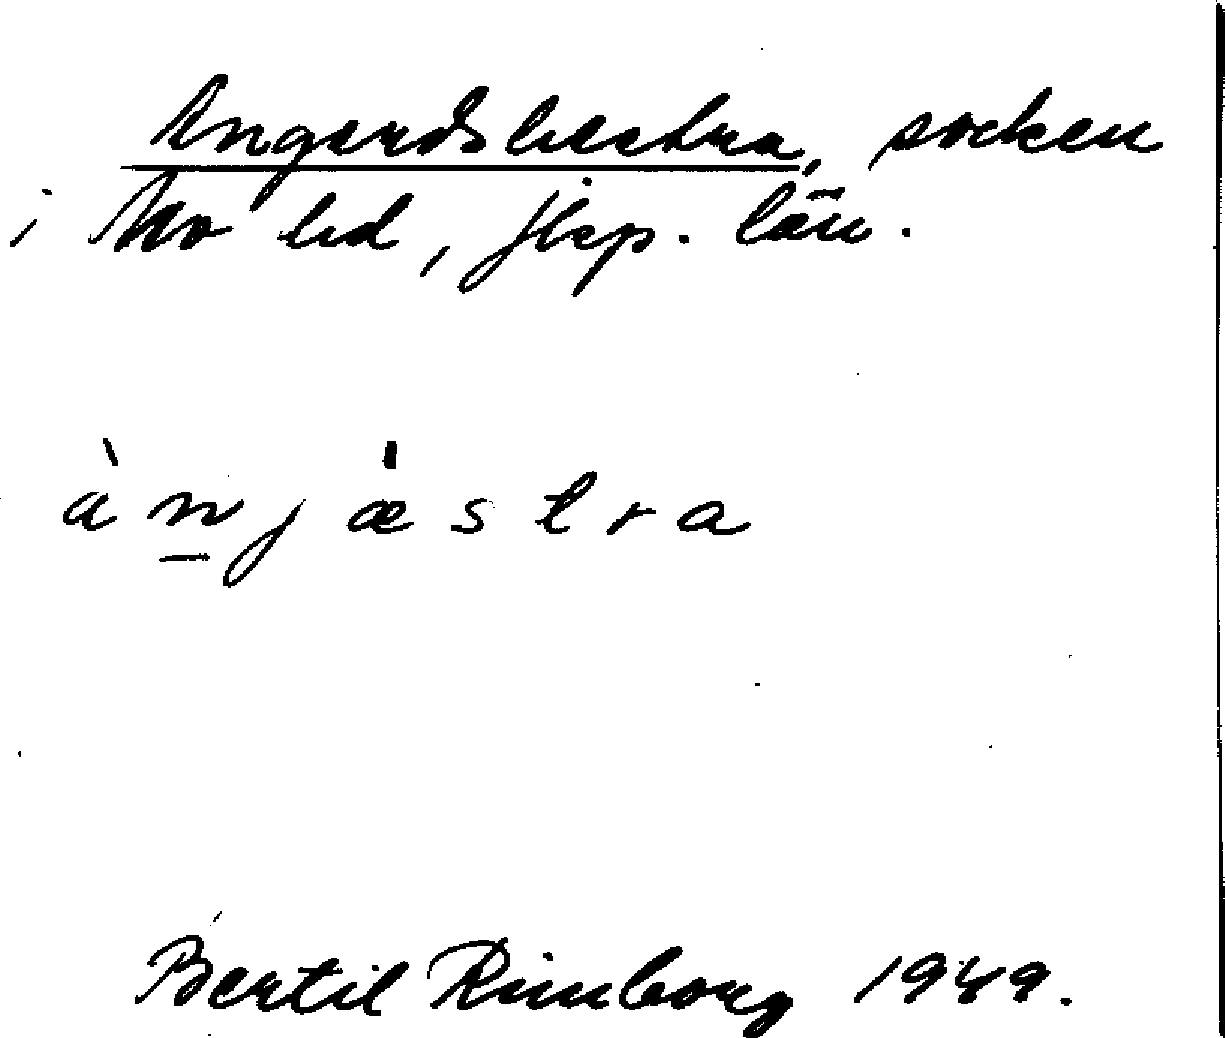 Angerdshestra, socken
i Mo hd, Jkp. län.
àn̲jæ̀stra
Bertil Rimborg 1949.